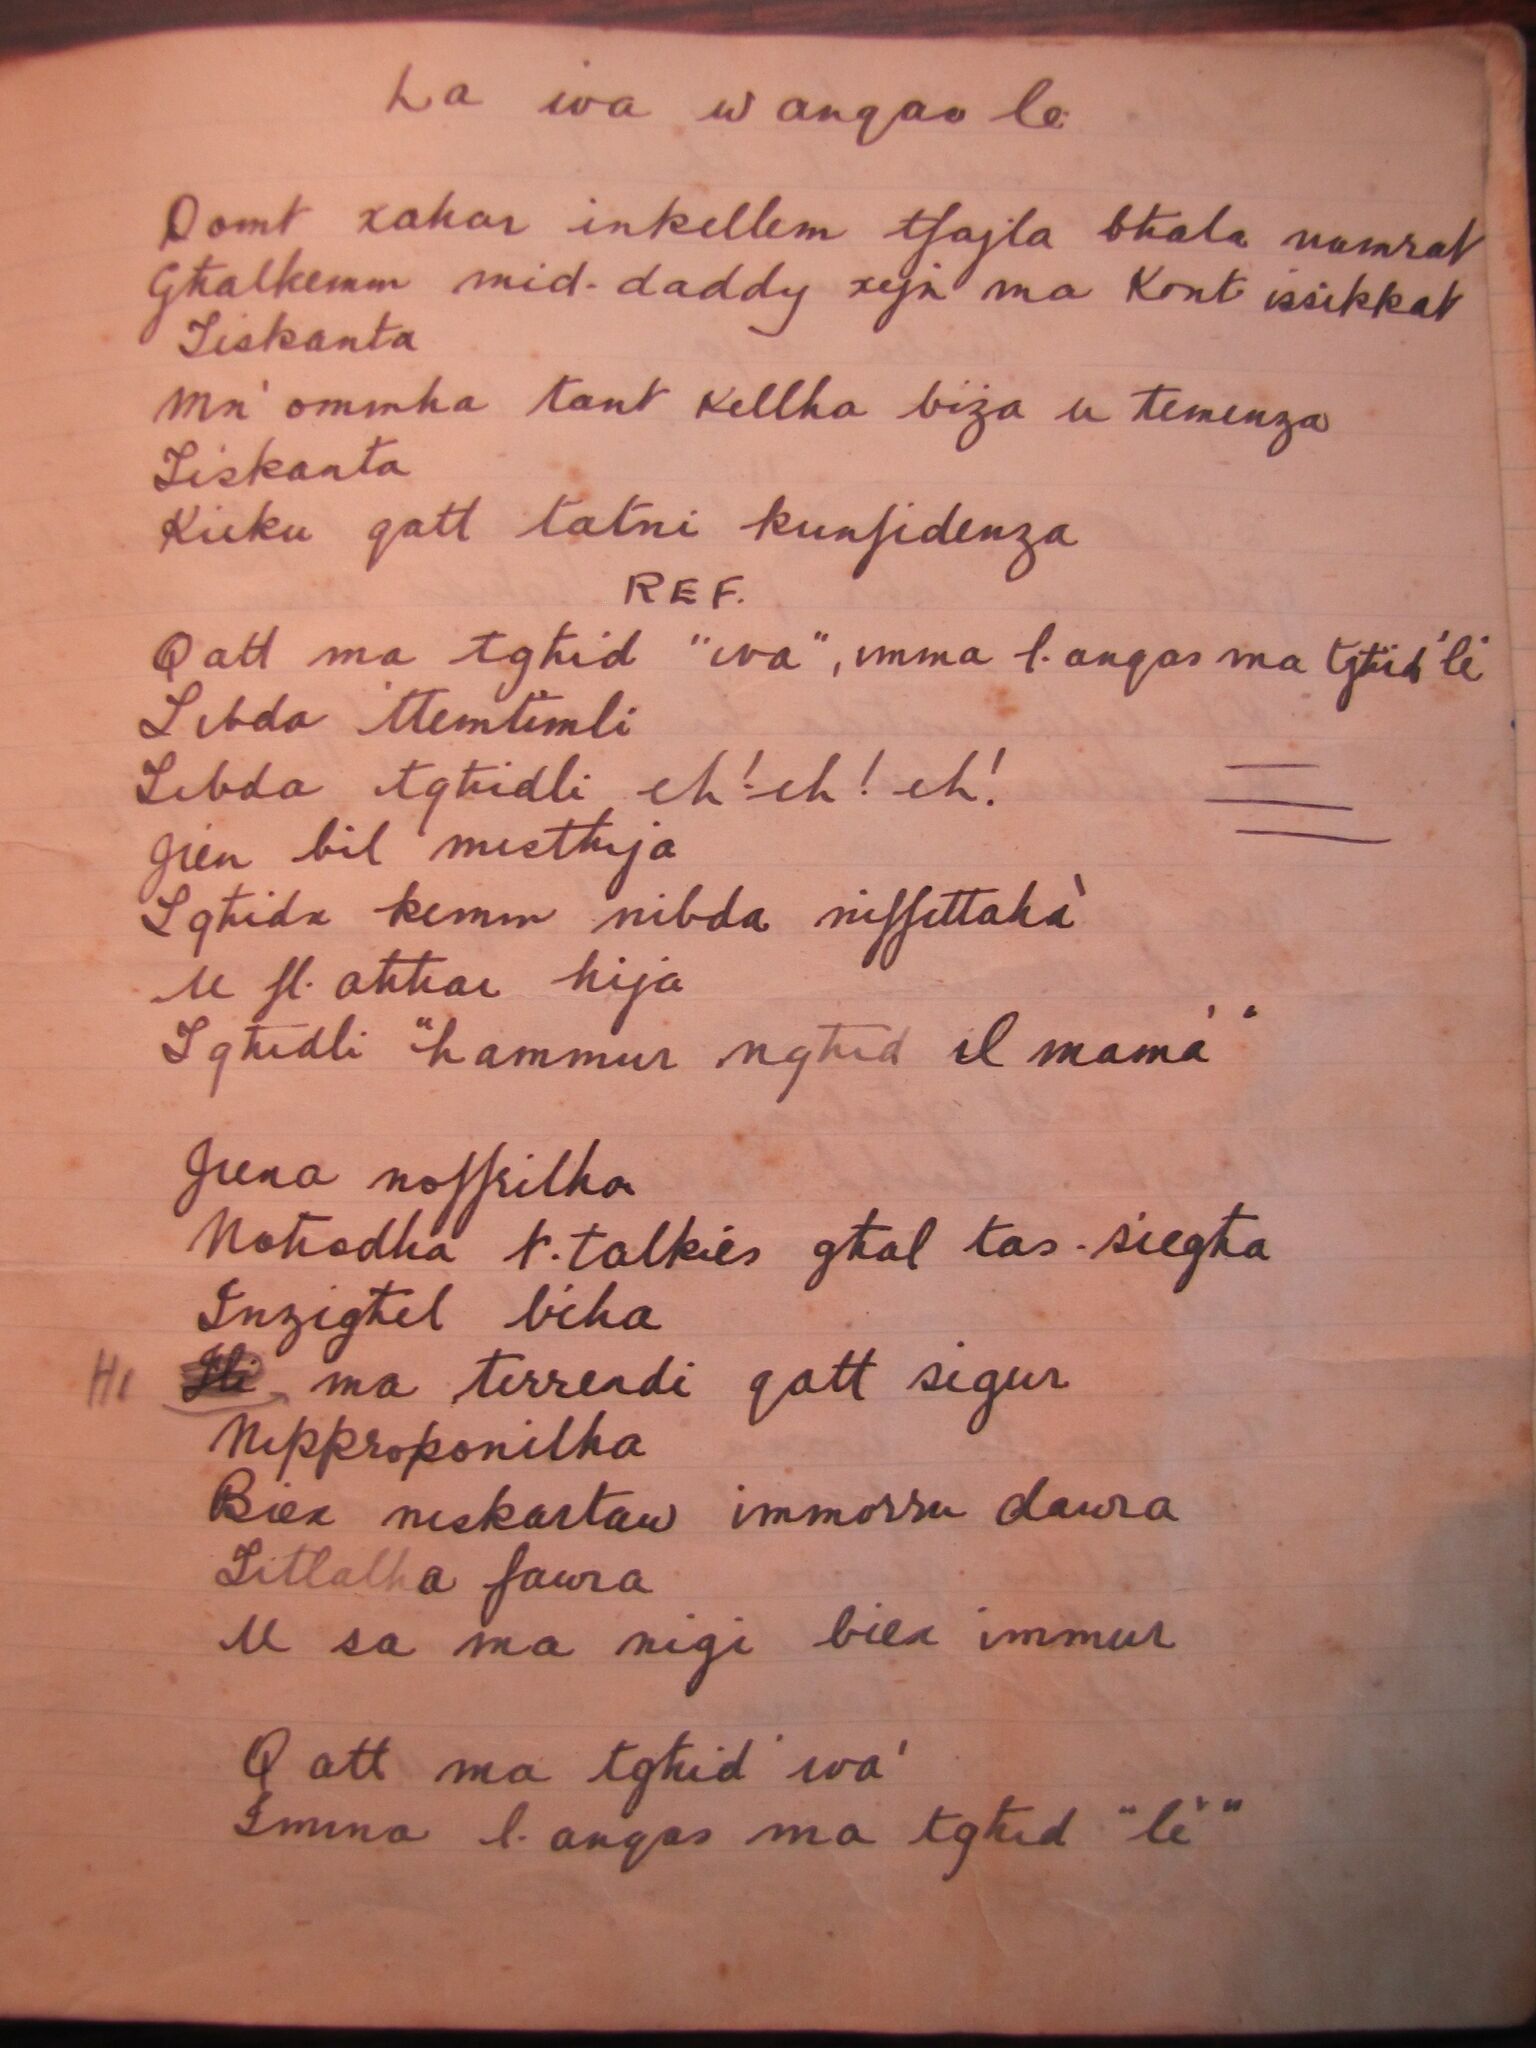 La iva w anqas le
Domt xahar inkellem tfajla bħala namrat
Għalkemm mid-daddy xejn ma Kont issikkat
Tiskanta
Mn' ommha tant kellha biża u temenza
Tiskanta
Kieku qatt tatni kunfidenza
REF.
Qatt ma tgħid "iva", imma l-anqas ma tgħid 'le'
Tibda ittemtimli
Tibda tgħidli eh! eh! eh!
Jien bil mistħija
Tgħidx kemm nibda niffittaha
U fl-aħħar hija
Tgħidli "ħammur ngħid il mamà"
Jiena noffrilha
Noħodha t-talkies għal tas-siegħa
Inżigħel biha
Hi ma tirrendi qatt sigur
Nipproponilha
Biex niskartaw immorru dawra
Titlalha fawra
U sa ma niġi biex immur
Qatt ma tgħid 'iva'
Imma l-anqas ma tgħid "le"